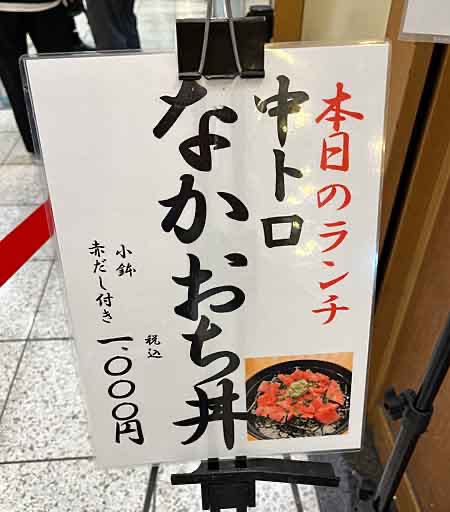 本日のランチ
中トロ
なかおち丼
小鉢
赤だし付き
税込
一、〇〇〇円